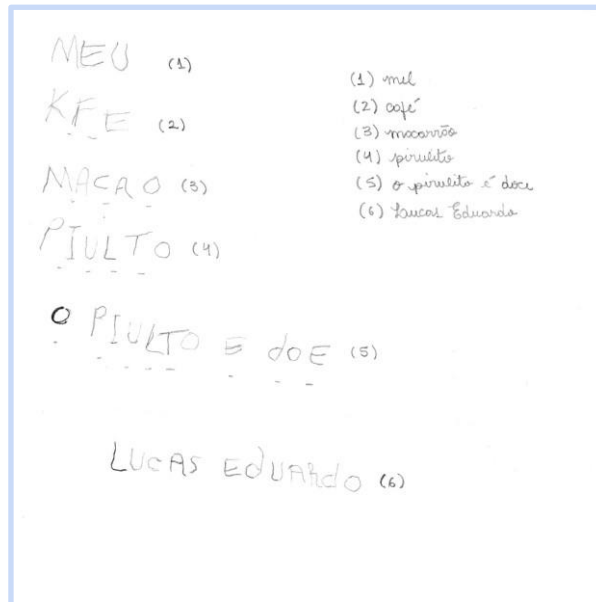 MEU (1)
KFE (2)
MACRO (3)
PIULTO (4)
O PIULTO E dOE (5)
LUCAS EdUARdO (6)
(1) mel
(2) café
(3) macarrão
(4) pirulito
(5) o pirulito é doce
(6) Lucas Eduardo